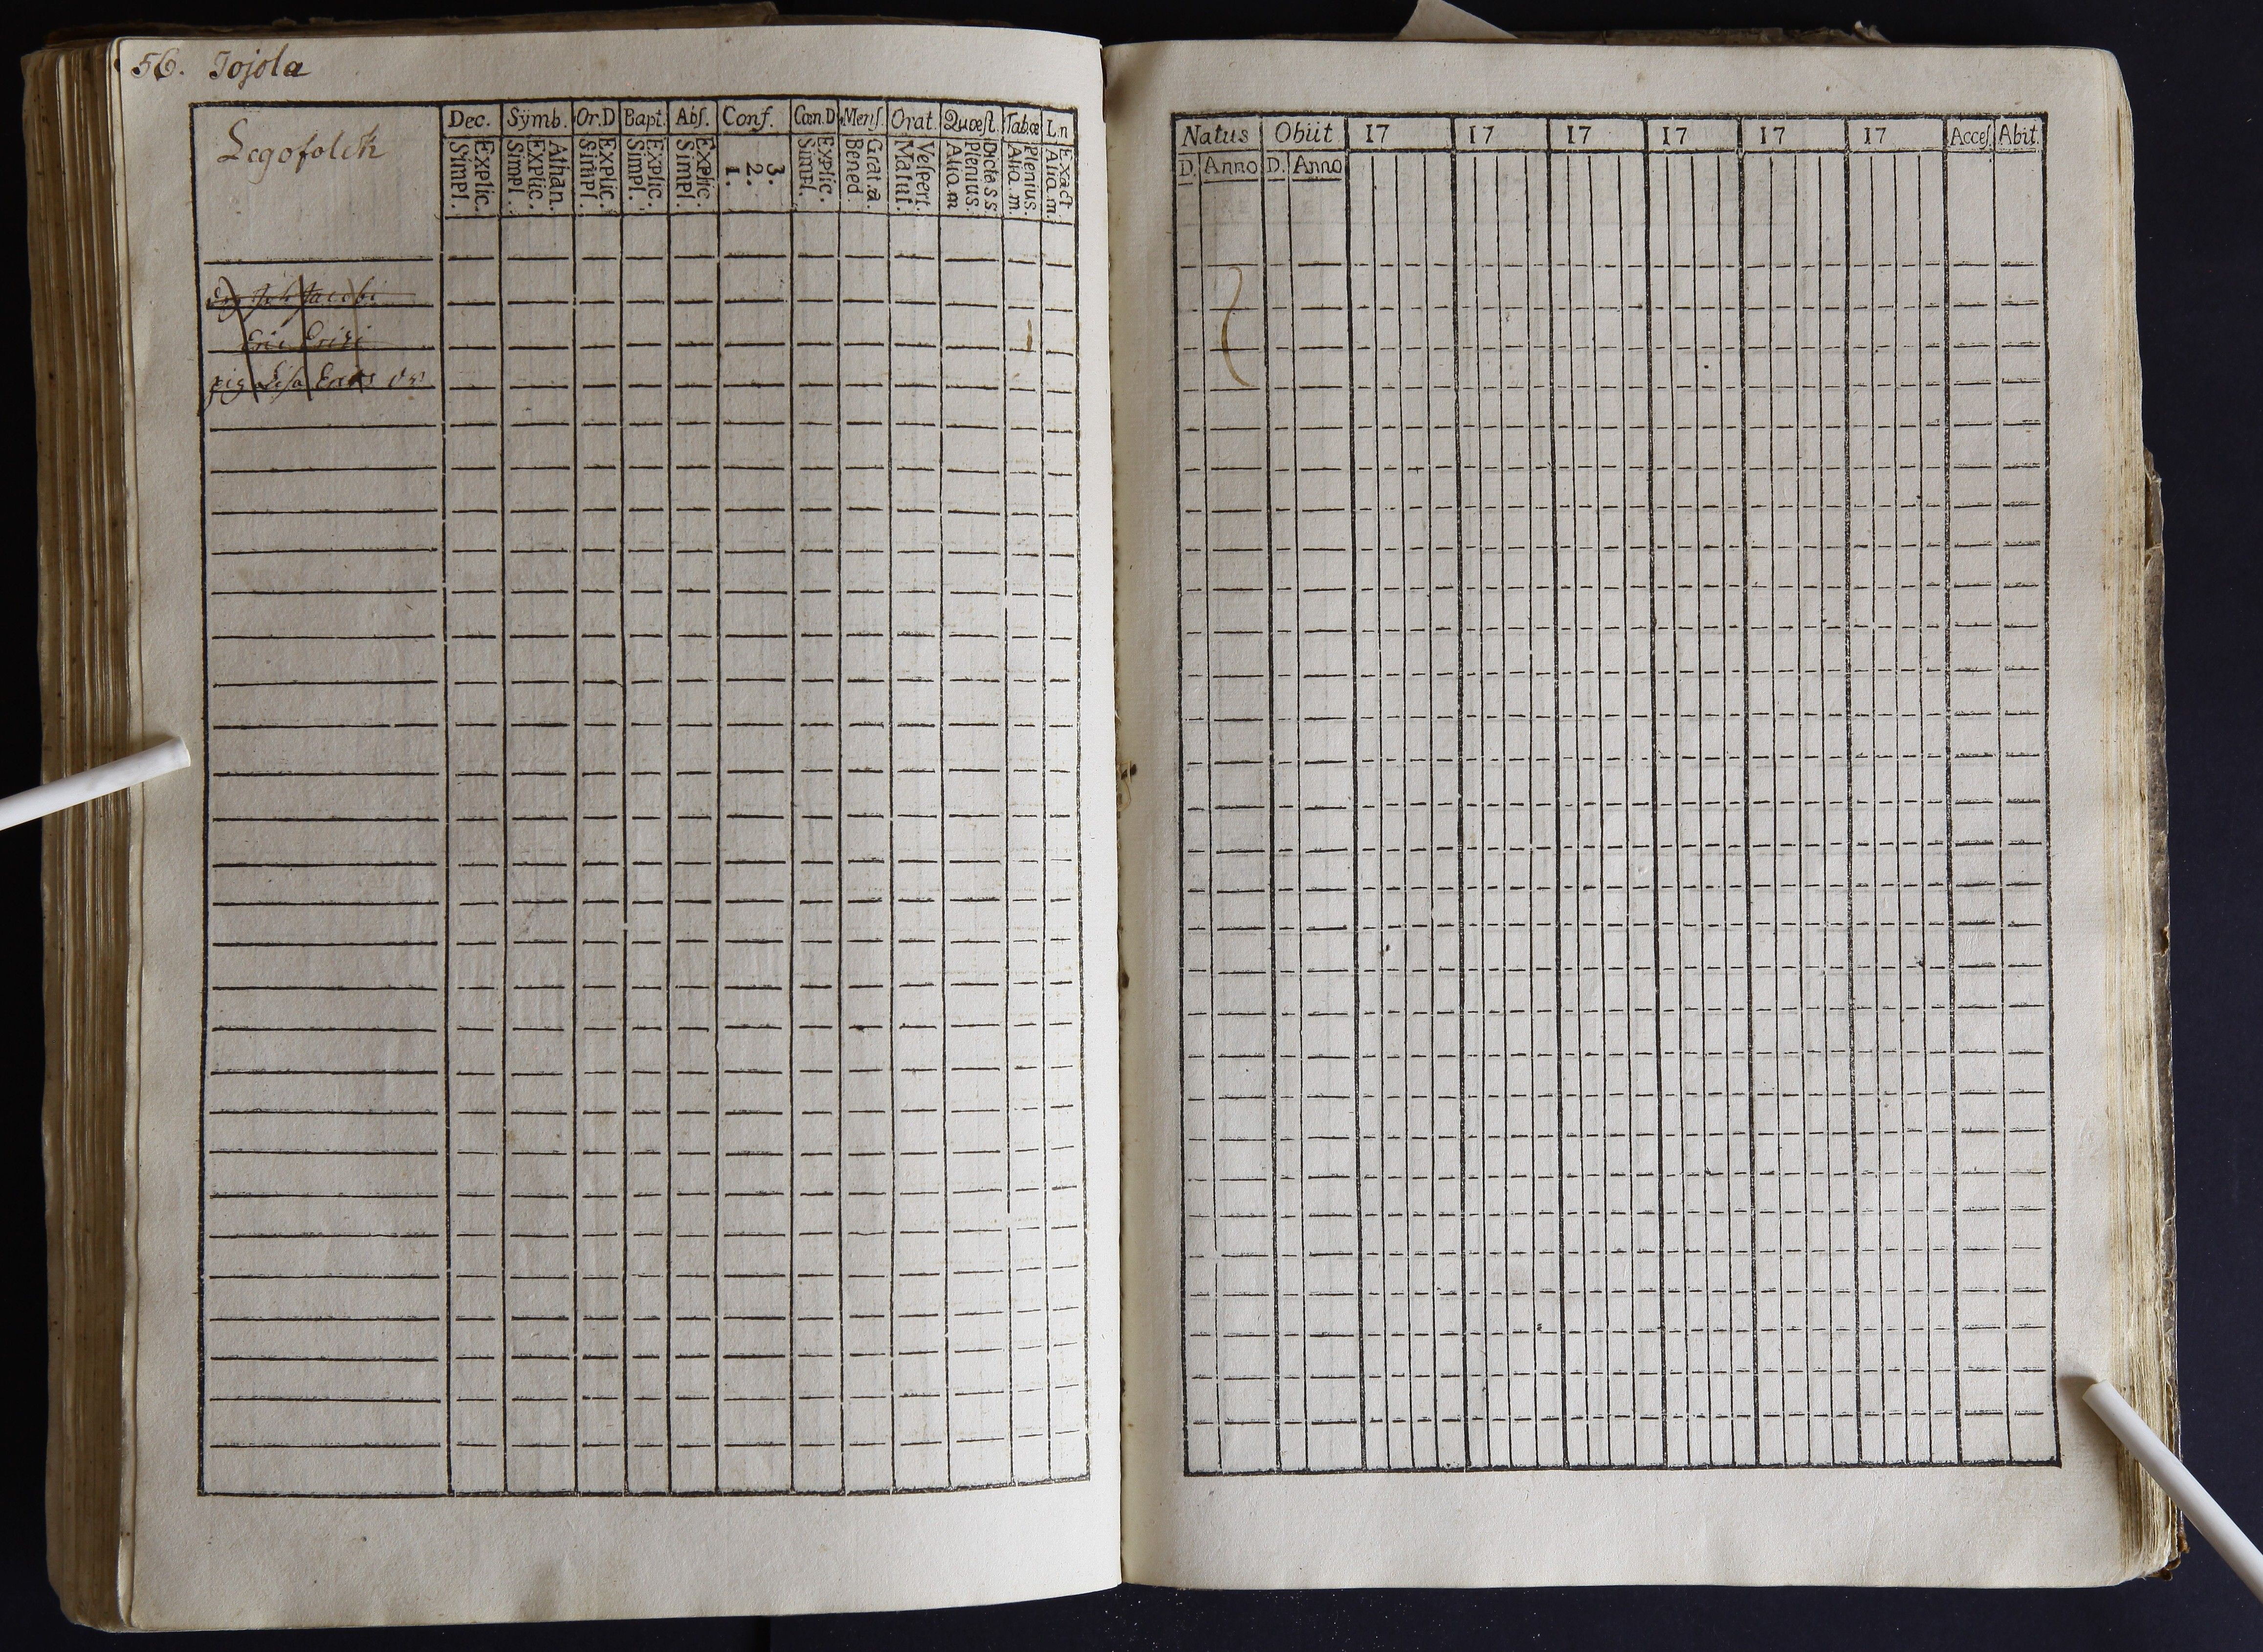 56. Jojola
Legofolck
Dec. Symb. Or.D Bapt. Abſ. Conf. Cœn.D Menſ. Orat. Quæſt. Tabœ L.n
Explic. Simpl. Athan. Explic. Simpl. Explic. Simpl. Explic. Simpl. Explic. Simpl. 3. 2. 1. Explic. Simpl. Grat.a Bened. Veſpert. Matut. Dicta S S Plenius. Alio.m Plenius. Alio.m. Exact. Alio.m.
Jacobi
pig Lisa Eriks dr
Natus Obiit 17 17 17 17 17 17 Acceſ. Abit.
D. Anno D. Anno